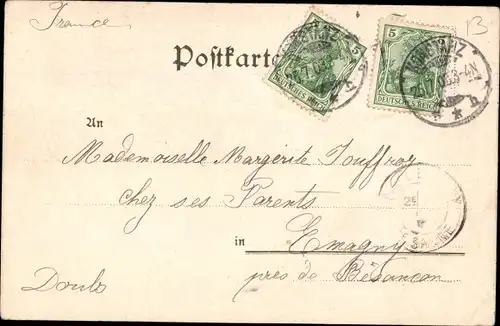 France
B
Postkarte
5
5
DEUTSCHES REICH
DEUTSCHES REICH
An
Mademoiselle Margérite Jouffroy
chez ses Parents
in Emagny
près de Bésancon
Doubs